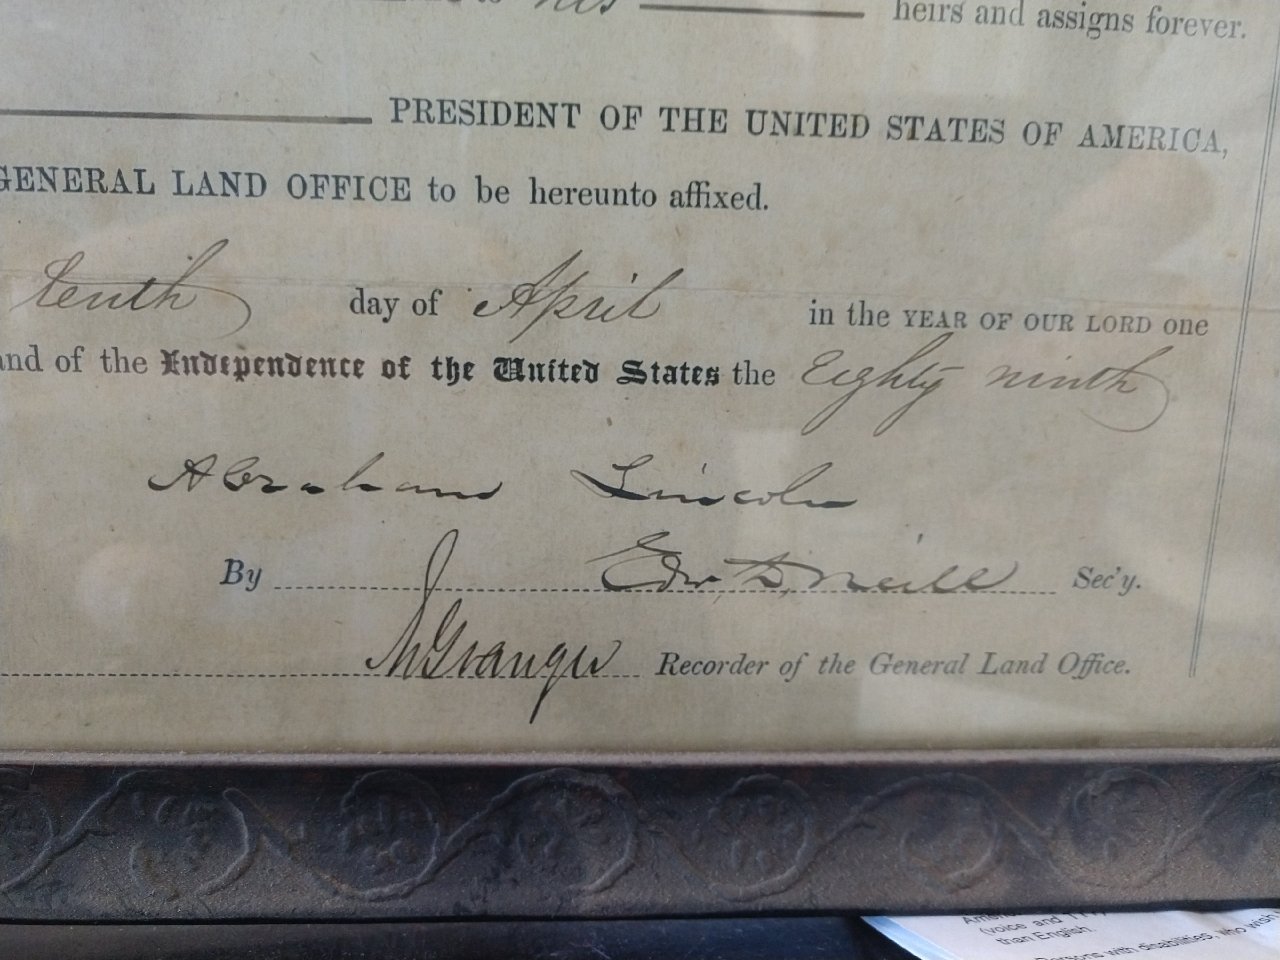 his heirs and assigns forever.
PRESIDENT OF THE UNITED STATES OF AMERICA,
GENERAL LAND OFFICE to be hereunto affixed.
tenth day of April in the YEAR OF OUR LORD one
and of the Independence of the United States the Eighty ninth
Abraham Lincoln
By Edw. D. Neill Sec'y.
Granger Recorder of the General Land Office.
(voice and
than English.
Persons with disabilities, who wish